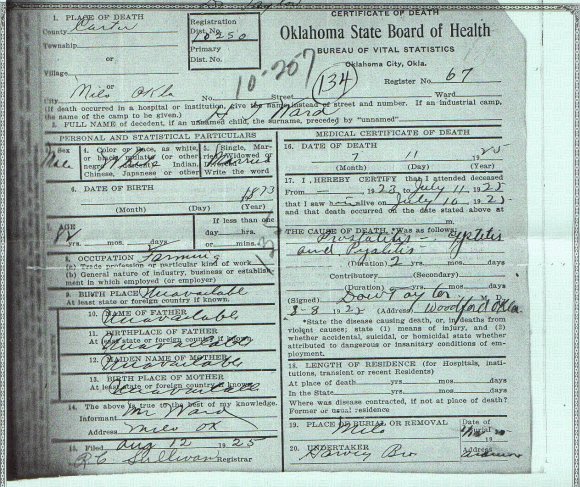 CERTIFICATE OF DEATH
Oklahoma State Board of Health
BUREAU OF VITAL STATISTICS
Oklahoma City, Okla.
Registration
Dist. No. 10250
Primary
Dist. No.
1. PLACE OF DEATH
County Carter
Township
or
Village
or
City Milo Okla
No. Street Ward
10-207
134
Register No. 67
(If death occurred in a hospital or institution, give the name instead of street and number. If an industrial camp,
the name of the camp to be given.)
2. FULL NAME of decedent, if an unnamed child, the surname, preceded by "unnamed" Ward
PERSONAL AND STATISTICAL PARTICULARS
3. Sex
Male
4. Color or Race, as white,
or black, mulatto (or other
negro), Indian,
Chinese, Japanese or other
5. (Single, Mar-
ried, Widowed or
Write the word
6. DATE OF BIRTH
1873
(Month) (Day) (Year)
AGE
yrs. mos. days
If less than one
day hrs.
or mins.
8. OCCUPATION Farming
(a) Trade profession or particular kind of work
(b) General nature of industry, business or establish-
ment in which employed (or employer)
9. BIRTH PLACE Unavailable
At least state or foreign country if known.
10. NAME OF FATHER
Unavailable
11. BIRTHPLACE OF FATHER
At least state or foreign country if known
Unavailable
12. MAIDEN NAME OF MOTHER
Unavailable
13. BIRTH PLACE OF MOTHER
At least state or foreign country if known
Unavailable
14. The above is true to the best of my knowledge.
Informant Mr Ward
Address Milo OK
15. Filed Aug 12 1925
R.C. Sullivan Registrar
MEDICAL CERTIFICATE OF DEATH
16. DATE OF DEATH
7 11 1925
(Month) (Day) (Year)
17. I, HEREBY CERTIFY that I attended deceased
From — 1923 to July 11 1925
that I saw h alive on July 10 1925
and that death occurred on the date stated above at
m.
THE CAUSE OF DEATH, Was as follows:
Prostatitis — Cystitis
and Pyelitis
(Duration) 2 yrs. mos. days
Contributory (Secondary)
(Duration) yrs. mos. days
(Signed) Dow Taylor M. D.
8-8 1925 (Address) Woodford Okla.
*State the disease causing death, or, in deaths from
violent causes; state (1) means of injury, and (2)
whether accidental, suicidal, or homicidal state whether
attributed to dangerous or insanitary conditions of em-
ployment.
18. LENGTH OF RESIDENCE (for Hospitals, Insti-
tutions, transient or recent Residents)
At place of death yrs. mos. days
In the State yrs. mos. days
Where was disease contracted, if not at place of death?
Former or usual residence
19. PLACE OF BURIAL OR REMOVAL
Milo
Date of
Burial
20. UNDERTAKER
Harvey Bro
Address
Ardmore